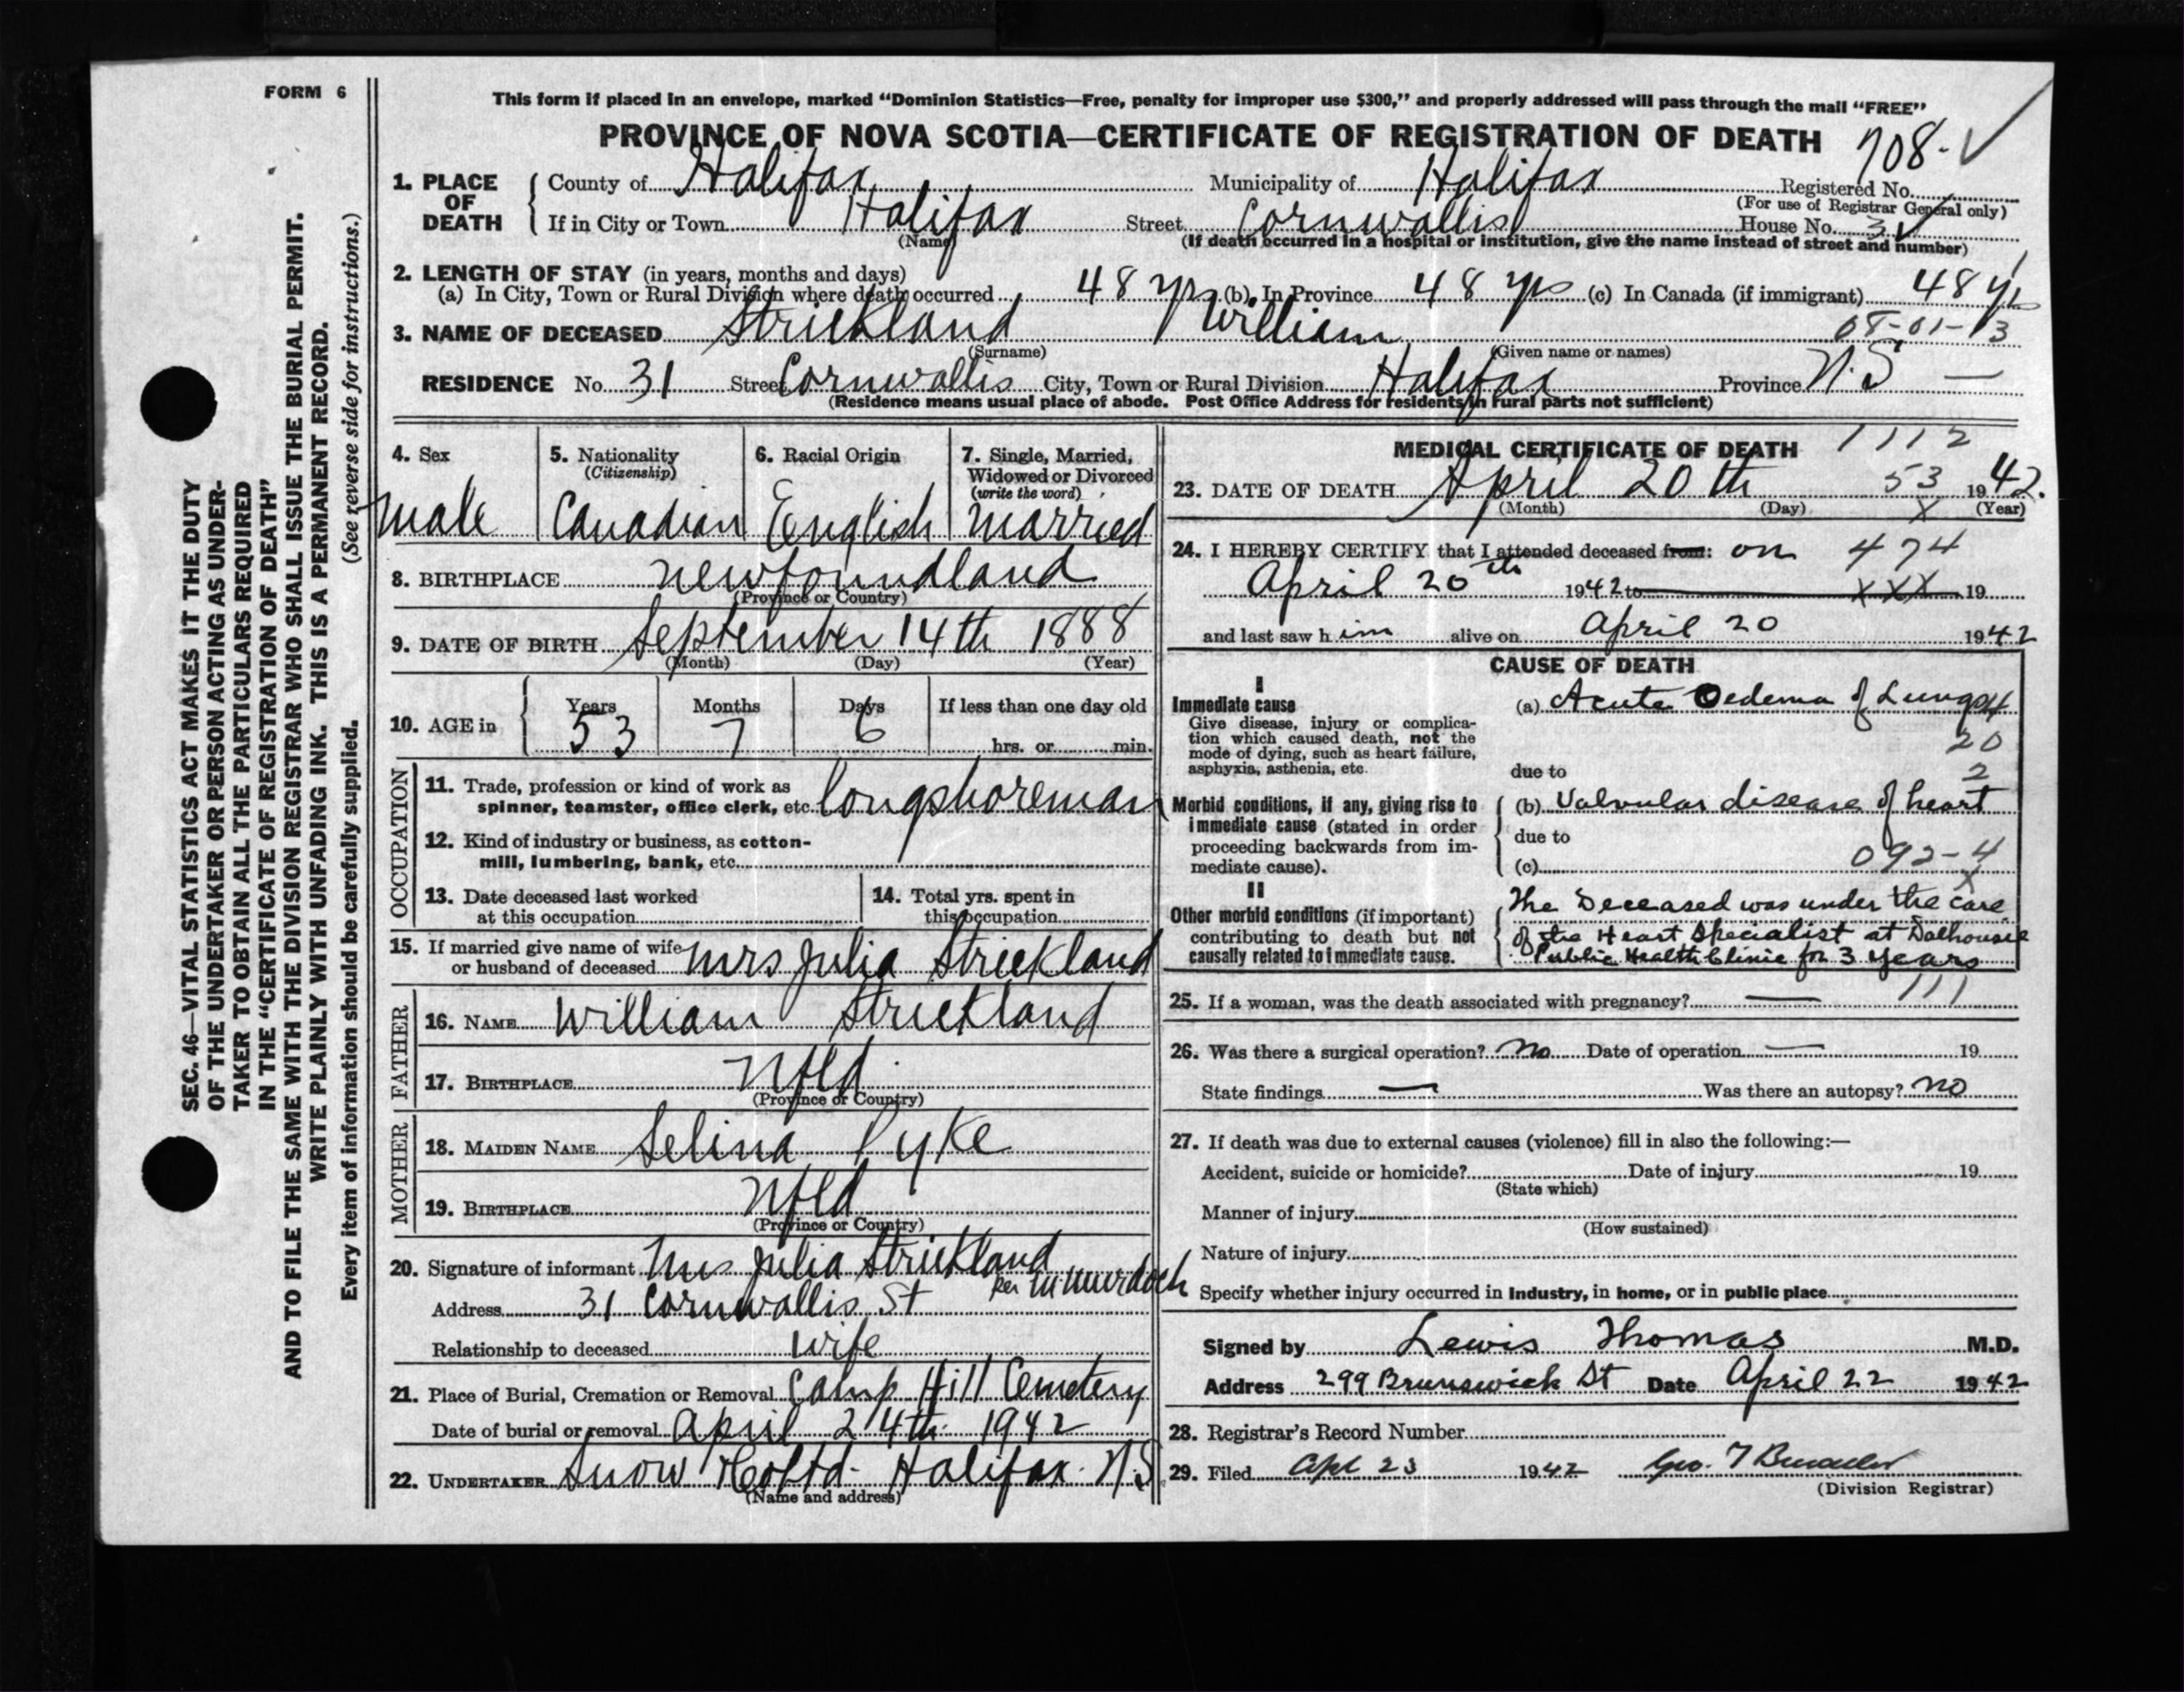 FORM 6
This form if placed in an envelope, marked “Dominion Statistics—Free, penalty for improper use $300,” and properly addressed will pass through the mail “FREE”
PROVINCE OF NOVA SCOTIA—CERTIFICATE OF REGISTRATION OF DEATH 708-
1. PLACE OF DEATH County of Halifax Municipality of Halifax Registered No.
(For use of Registrar General only)
If in City or Town Halifax Street Cornwallis House No. 31
(Name) (If death occurred in a hospital or institution, give the name instead of street and number)
2. LENGTH OF STAY (in years, months and days)
(a) In City, Town or Rural Division where death occurred 48 yrs (b) In Province 48 yrs (c) In Canada (if immigrant) 48 yrs
3. NAME OF DECEASED Strickland William 08-01-13
(Surname) (Given name or names)
RESIDENCE No. 31 Street Cornwallis City, Town or Rural Division Halifax Province N.S —
(Residence means usual place of abode. Post Office Address for residents in rural parts not sufficient)
4. Sex 5. Nationality (Citizenship) 6. Racial Origin 7. Single, Married, Widowed or Divorced (write the word)
male Canadian English married
8. BIRTHPLACE Newfoundland
(Province or Country)
9. DATE OF BIRTH September 14th 1888
(Month) (Day) (Year)
10. AGE in Years Months Days If less than one day old
53 7 6 hrs. or min.
OCCUPATION
11. Trade, profession or kind of work as
spinner, teamster, office clerk, etc. longshoreman
12. Kind of industry or business, as cotton-
mill, lumbering, bank, etc.
13. Date deceased last worked
at this occupation
14. Total yrs. spent in
this occupation
15. If married give name of wife
or husband of deceased Mrs Julia Strickland
FATHER
16. NAME William Strickland
17. BIRTHPLACE Nfld
(Province or Country)
MOTHER
18. MAIDEN NAME Selina Pyke
19. BIRTHPLACE Nfld
(Province or Country)
20. Signature of informant Mrs Julia Strickland
per M Murdoch
Address 31 Cornwallis St
Relationship to deceased wife
21. Place of Burial, Cremation or Removal Camp Hill Cemetery
Date of burial or removal April 24th 1942
22. UNDERTAKER Snow & Co Ltd. Halifax. N.S
(Name and address)
MEDICAL CERTIFICATE OF DEATH 1112
23. DATE OF DEATH April 20th 53 1942.
(Month) (Day) X (Year)
24. I HEREBY CERTIFY that I attended deceased from: on 474
April 20th 1942 to XXX 19
and last saw him alive on April 20 1942
CAUSE OF DEATH
I
Immediate cause
Give disease, injury or complica-
tion which caused death, not the
mode of dying, such as heart failure,
asphyxia, asthenia, etc.
(a) Acute Oedema of Lungs
20
due to 2
Morbid conditions, if any, giving rise to
immediate cause (stated in order
proceeding backwards from im-
mediate cause).
(b) Valvular disease of heart
due to
(c) 092-4
X
II
Other morbid conditions (if important)
contributing to death but not
causally related to immediate cause.
The Deceased was under the care
of the Heart Specialist at Dalhousie
Public Health Clinic for 3 years
25. If a woman, was the death associated with pregnancy? — 111
26. Was there a surgical operation? No Date of operation — 19
State findings — Was there an autopsy? No
27. If death was due to external causes (violence) fill in also the following:—
Accident, suicide or homicide? Date of injury 19
(State which)
Manner of injury
(How sustained)
Nature of injury
Specify whether injury occurred in Industry, in home, or in public place
Signed by Lewis Thomas M.D.
Address 299 Brunswick St Date April 22 1942
28. Registrar’s Record Number
29. Filed Apl 23 1942 Geo. T
(Division Registrar)
SEC. 46—VITAL STATISTICS ACT MAKES IT THE DUTY
OF THE UNDERTAKER OR PERSON ACTING AS UNDER-
TAKER TO OBTAIN ALL THE PARTICULARS REQUIRED
IN THE “CERTIFICATE OF REGISTRATION OF DEATH”
AND TO FILE THE SAME WITH THE DIVISION REGISTRAR WHO SHALL ISSUE THE BURIAL PERMIT.
WRITE PLAINLY WITH UNFADING INK. THIS IS A PERMANENT RECORD.
Every item of information should be carefully supplied. (See reverse side for instructions.)